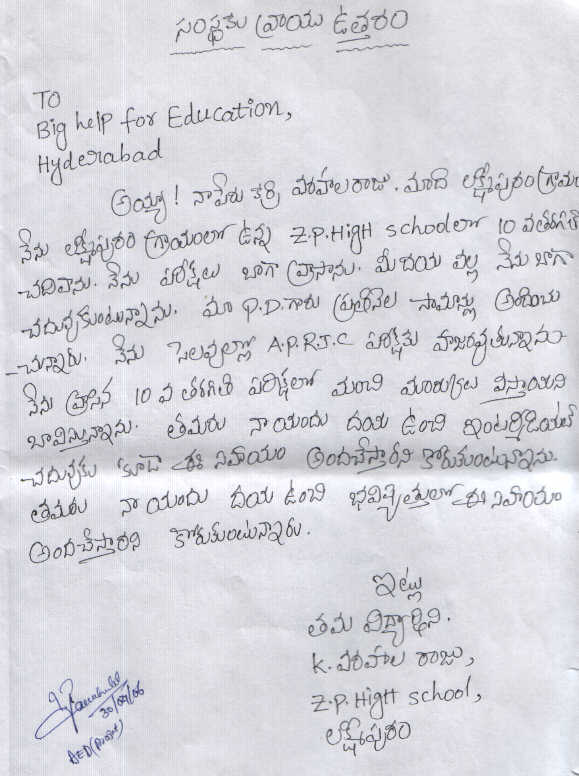 సంస్థకు వ్రాయు ఉత్తరం
TO
Big help for Education,
Hyderabad
అయ్యా! నాపేరు వరపాలరాజు. మాది లక్ష్మీపురం గ్రామం
నేను లక్ష్మీపురం గ్రామంలో ఉన్న Z.P.High school లో 10 వతరగతి
చదివాను. నేను పరీక్షలు బాగా వ్రాసాను. మీదయ వల్ల నేను బాగా
చదువుకుంటున్నాను. మా P.D.గారు ప్రతినెల సామాన్లు అందించు
చున్నారు. నేను సెలవుల్లో A.P.R.J.C పరీక్షకు హాజరవుతున్నాను
నేను వ్రాసిన 10 వ తరగతి పరిక్షలో మంచి మార్కులు వస్తాయని
బావిస్తున్నాను. తమరు నాయందు దయ ఉంచి ఇంటర్మీడియట్
చదువుకు కూడా ఈ సహాయం అందచేస్తారని కోరుకుంటున్నాను.
తమరు నా యందు దయ ఉంచి భవిష్యత్తులో ఈ సహాయం
అందచేస్తారని కోరుకుంటున్నారు.
ఇట్లు
తమ విద్యార్థిని.
K. వరపాల రాజు,
Z.P.High school,
లక్ష్మీపురం
30/04/06